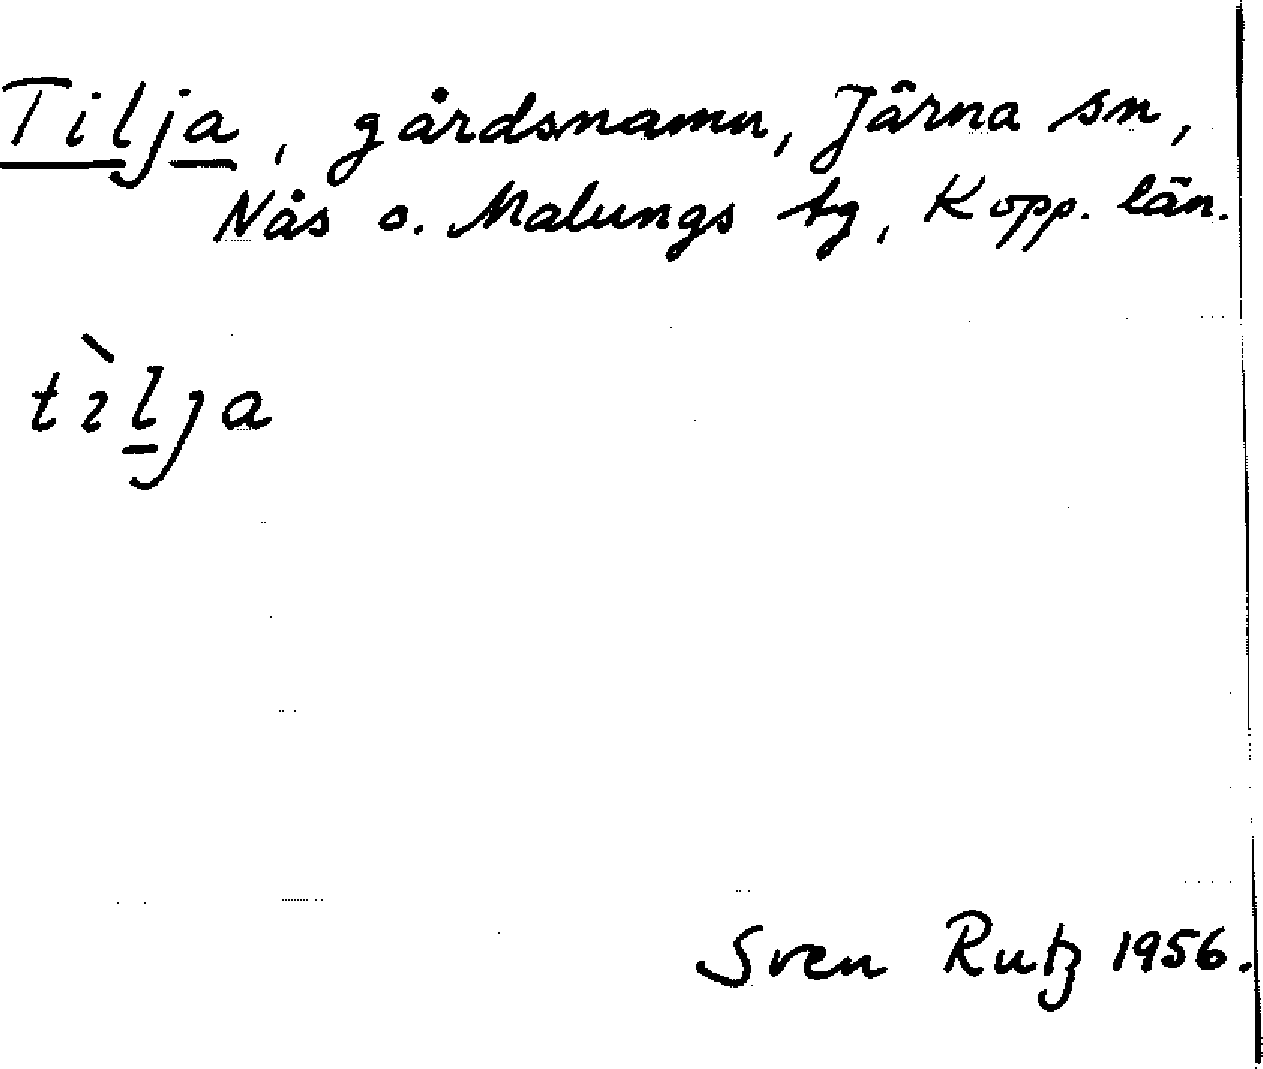 Tilja, gårdsnamn, Järna sn,
Nås o. Malungs tg, Kopp. län.
tìlja
Sven Rutz 1956.